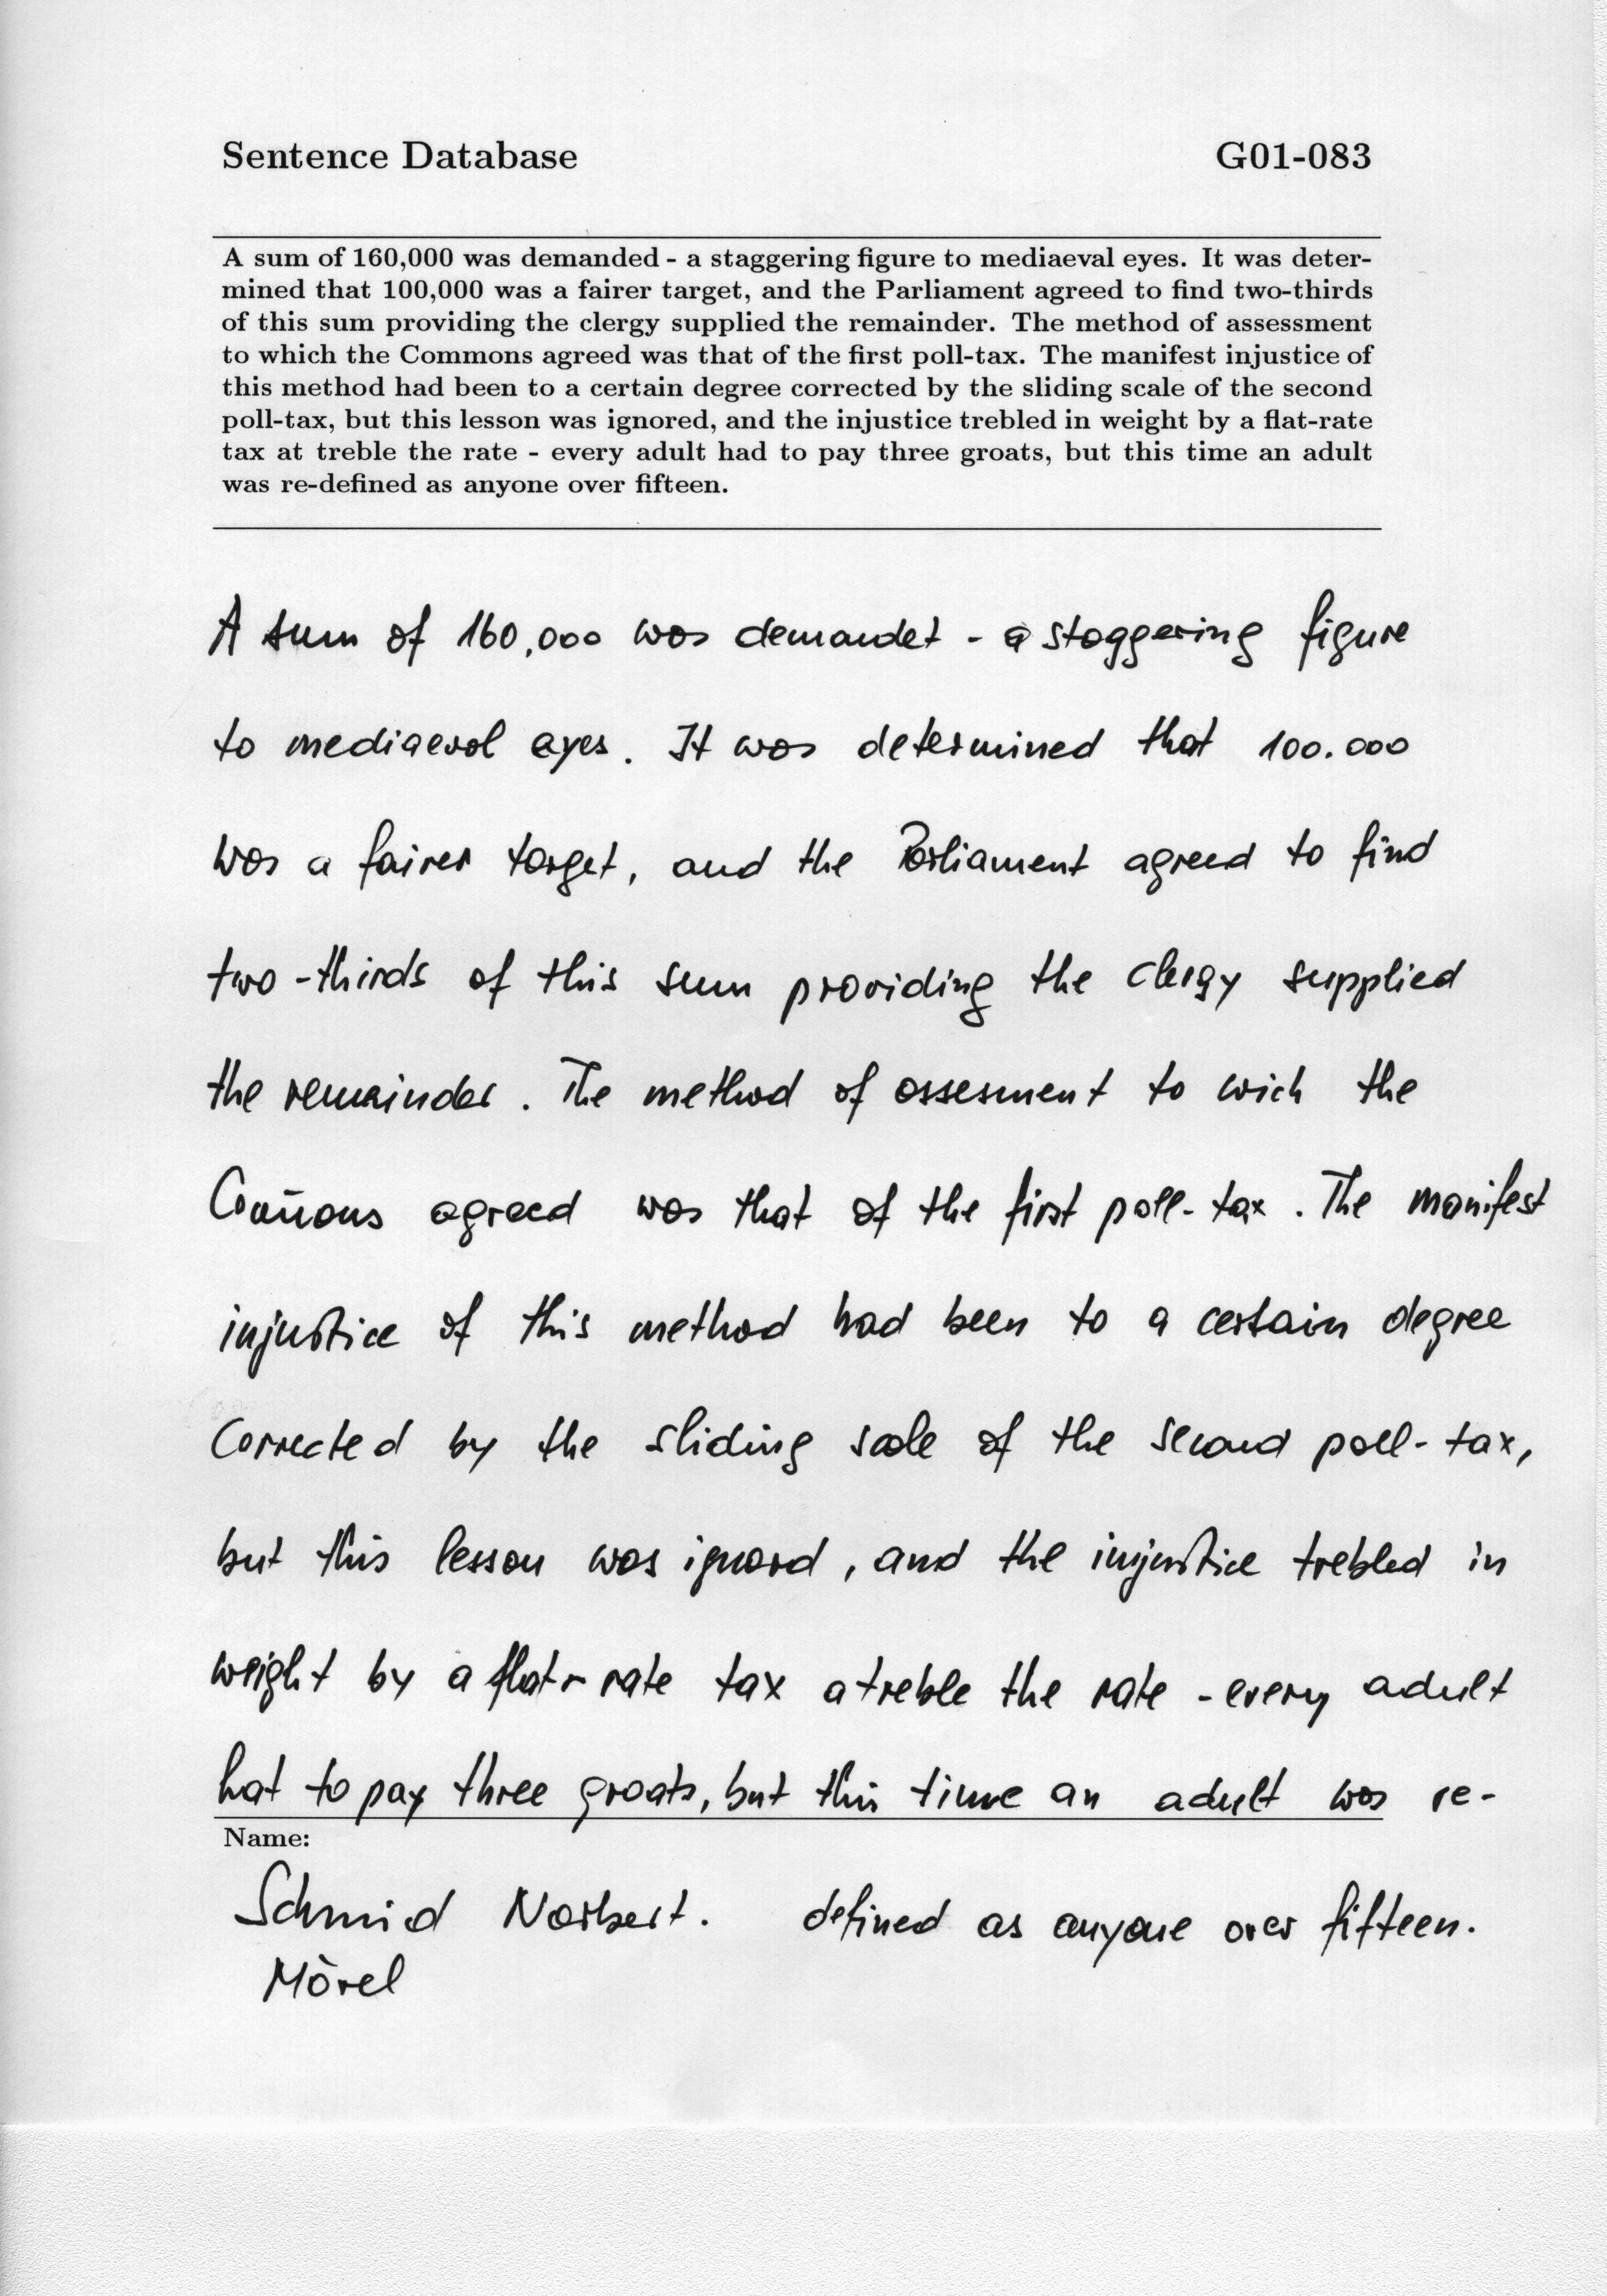 Sentence Database G01-083
A sum of 160,000 was demanded - a staggering figure to mediaeval eyes. It was deter-
mined that 100,000 was a fairer target, and the Parliament agreed to find two-thirds
of this sum providing the clergy supplied the remainder. The method of assessment
to which the Commons agreed was that of the first poll-tax. The manifest injustice of
this method had been to a certain degree corrected by the sliding scale of the second
poll-tax, but this lesson was ignored, and the injustice trebled in weight by a flat-rate
tax at treble the rate - every adult had to pay three groats, but this time an adult
was re-defined as anyone over fifteen.
A sum of 160,000 was demandet - a staggering figure
to mediaeval eyes. It was determined that 100.000
was a fairer target, and the Parliament agreed to find
two-thirds of this sum providing the clergy supplied
the remainder. The method of assesment to wich the
Com̄ons agreed was that of the first poll-tax. The manifest
injustice of this method had been to a certain degree
corrected by the sliding scale of the second poll-tax,
but this lesson was ignord, and the injustice trebled in
weight by a flat-rate tax a treble the rate - every adult
hat to pay three groats, but this time an adult was re-
Name:
Schmid Norbert. defined as anyone over fifteen.
Mörel